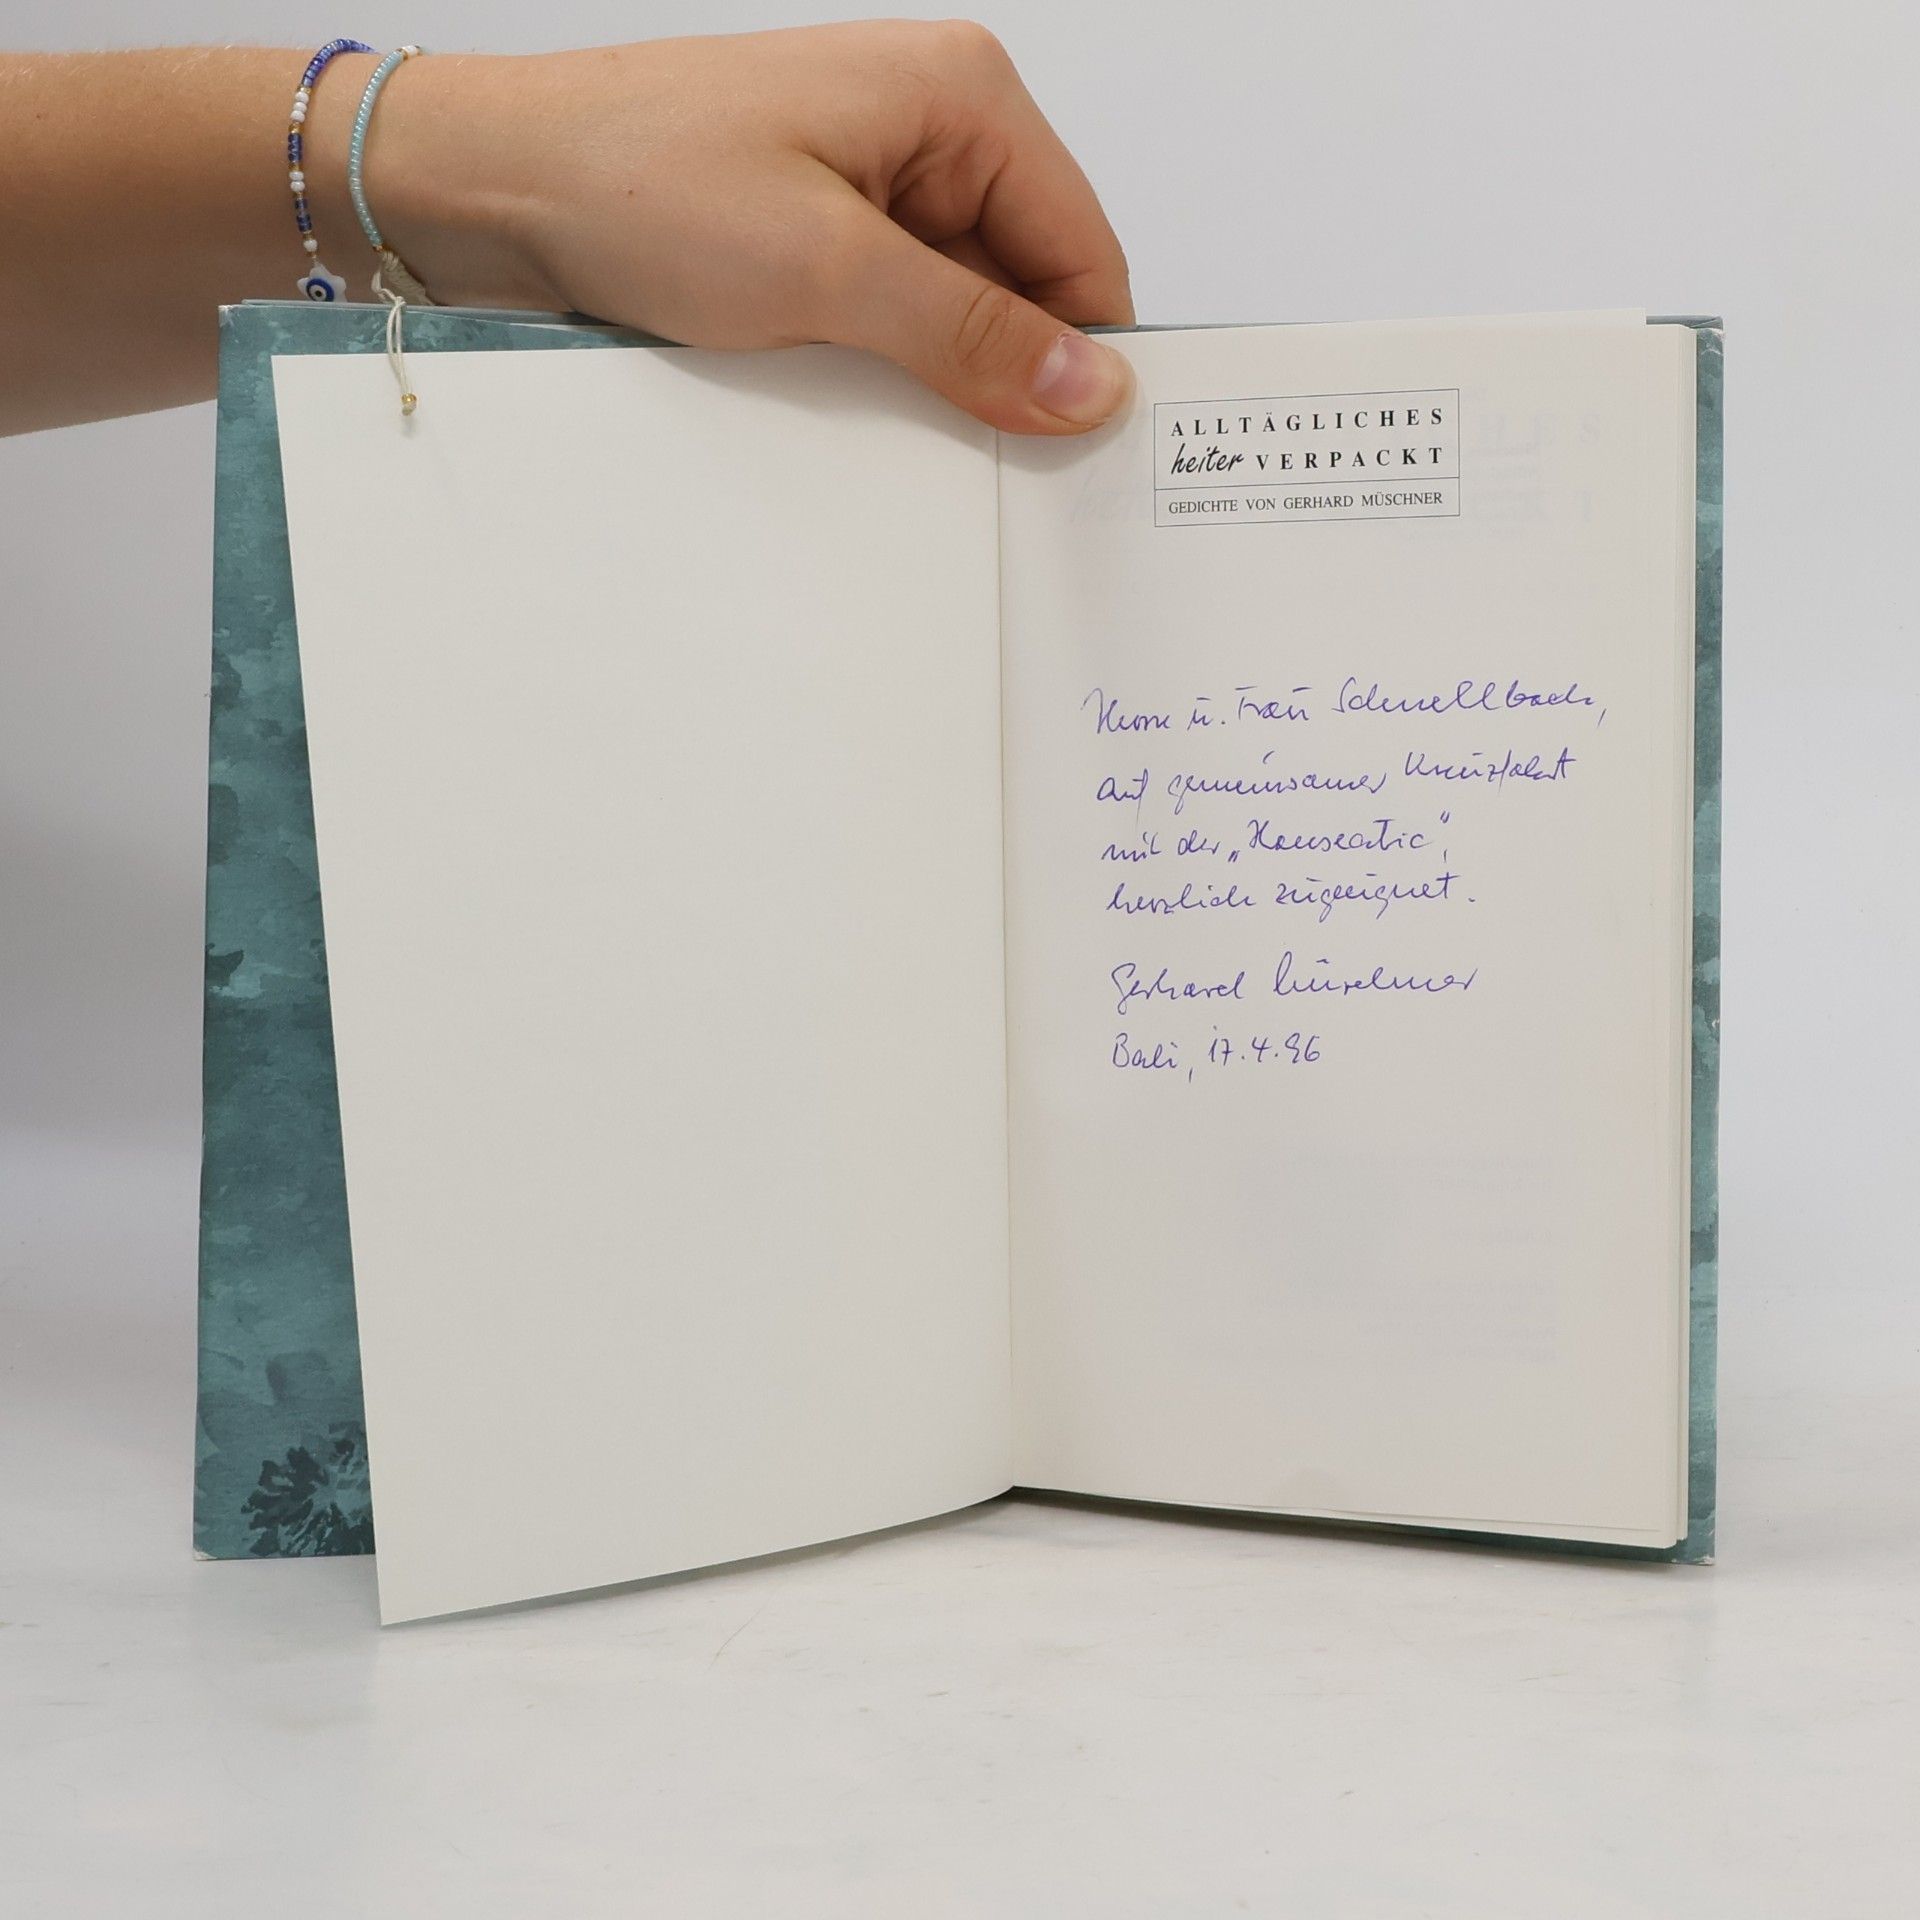 ALLTÄGLICHES
heiter VERPACKT
GEDICHTE VON GERHARD MÜSCHNER
Herrn u. Frau Schnellbach,
auf gemeinsamer Kreuzfahrt
mit der „Hanseatic",
herzlich zugeeignet.
Gerhard Müschner
Bali, 17.4.96